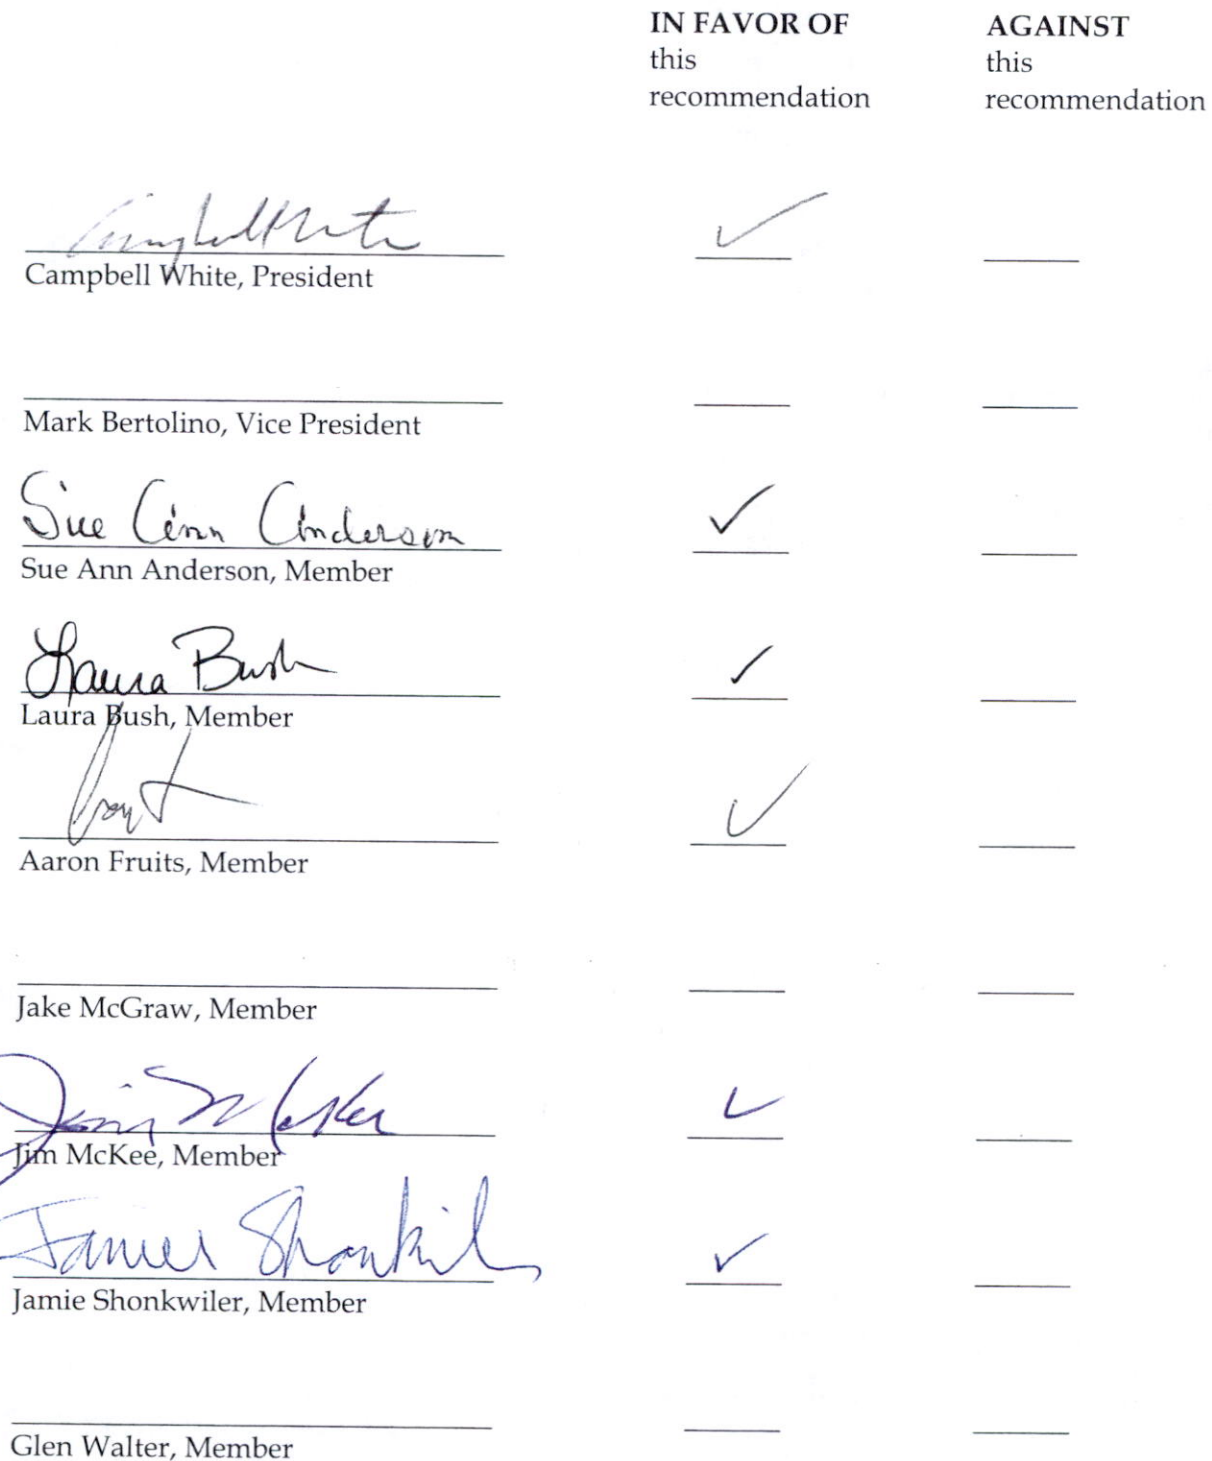 IN FAVOR OF AGAINST
this this
recommendation recommendation
Campbell White ✓
Campbell White, President
Mark Bertolino, Vice President
Sue Ann Anderson ✓
Sue Ann Anderson, Member
Laura Bush ✓
Laura Bush, Member
✓
Aaron Fruits, Member
Jake McGraw, Member
Jim McKee ✓
Jim McKee, Member
✓
Jamie Shonkwiler, Member
Glen Walter, Member